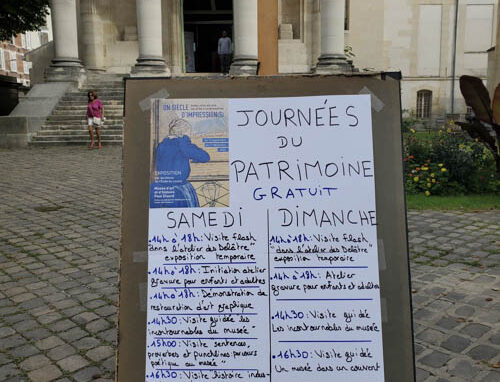 UN SIÈCLE
D'IMPRESSION(S)
EXPOSITION
JOURNÉES
DU
PATRIMOINE
GRATUIT
SAMEDI
14h à 18h: Visite flash
"dans l'atelier des Delâtre"
exposition temporaire
14h à 18h: Initiation atelier
gravure pour enfants et adultes
14h à 18h: Démonstration de
restauration d'art graphique
14h30: Visite guidée les
incontournables du musée
15h00: Visite sentences,
proverbes et punchlines: parcours
poétique au musée"
16h30: Visite histoire indus-
DIMANCHE
14h à 18h: Visite flash
"dans l'atelier des Delâtre"
exposition temporaire
14h à 18h: Atelier
gravure pour enfants et adultes
14h30: Visite guidée
Les incontournables du musée
16h30: Visite guidée
Un musée dans un couvent